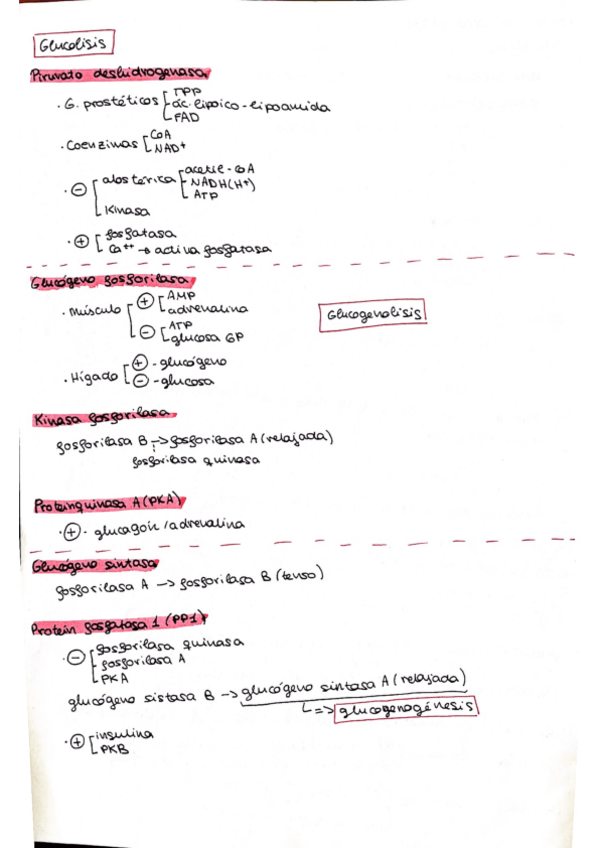 Glucolisis
Piruvato deshidrogenasa
· G. prostéticos TPP
ác. lipoico - lipoamida
FAD
· Coenzimas CoA
NAD+
· ⊖ alostérica acetil-CoA
NADH(H+)
ATP
Kinasa
· ⊕ fosfatasa
Ca++ → activa fosfatasa
Glucógeno fosforilasa
· Músculo ⊕ AMP
adrenalina
⊖ ATP
glucosa 6P
Glucogenolisis
· Hígado ⊕ - glucógeno
⊖ - glucosa
Kinasa fosforilasa
fosforilasa B → fosforilasa A (relajada)
fosforilasa quinasa
Proteinquinasa A (PKA)
· ⊕ - glucagón / adrenalina
Glucógeno sintasa
fosforilasa A → fosforilasa B (tenso)
Protein fosfatasa 1 (PP1)
· ⊖ fosforilasa quinasa
fosforilasa A
PKA
glucógeno sistasa B → glucógeno sintasa A (relajada)
=> glucogenogénesis
· ⊕ insulina
PKB